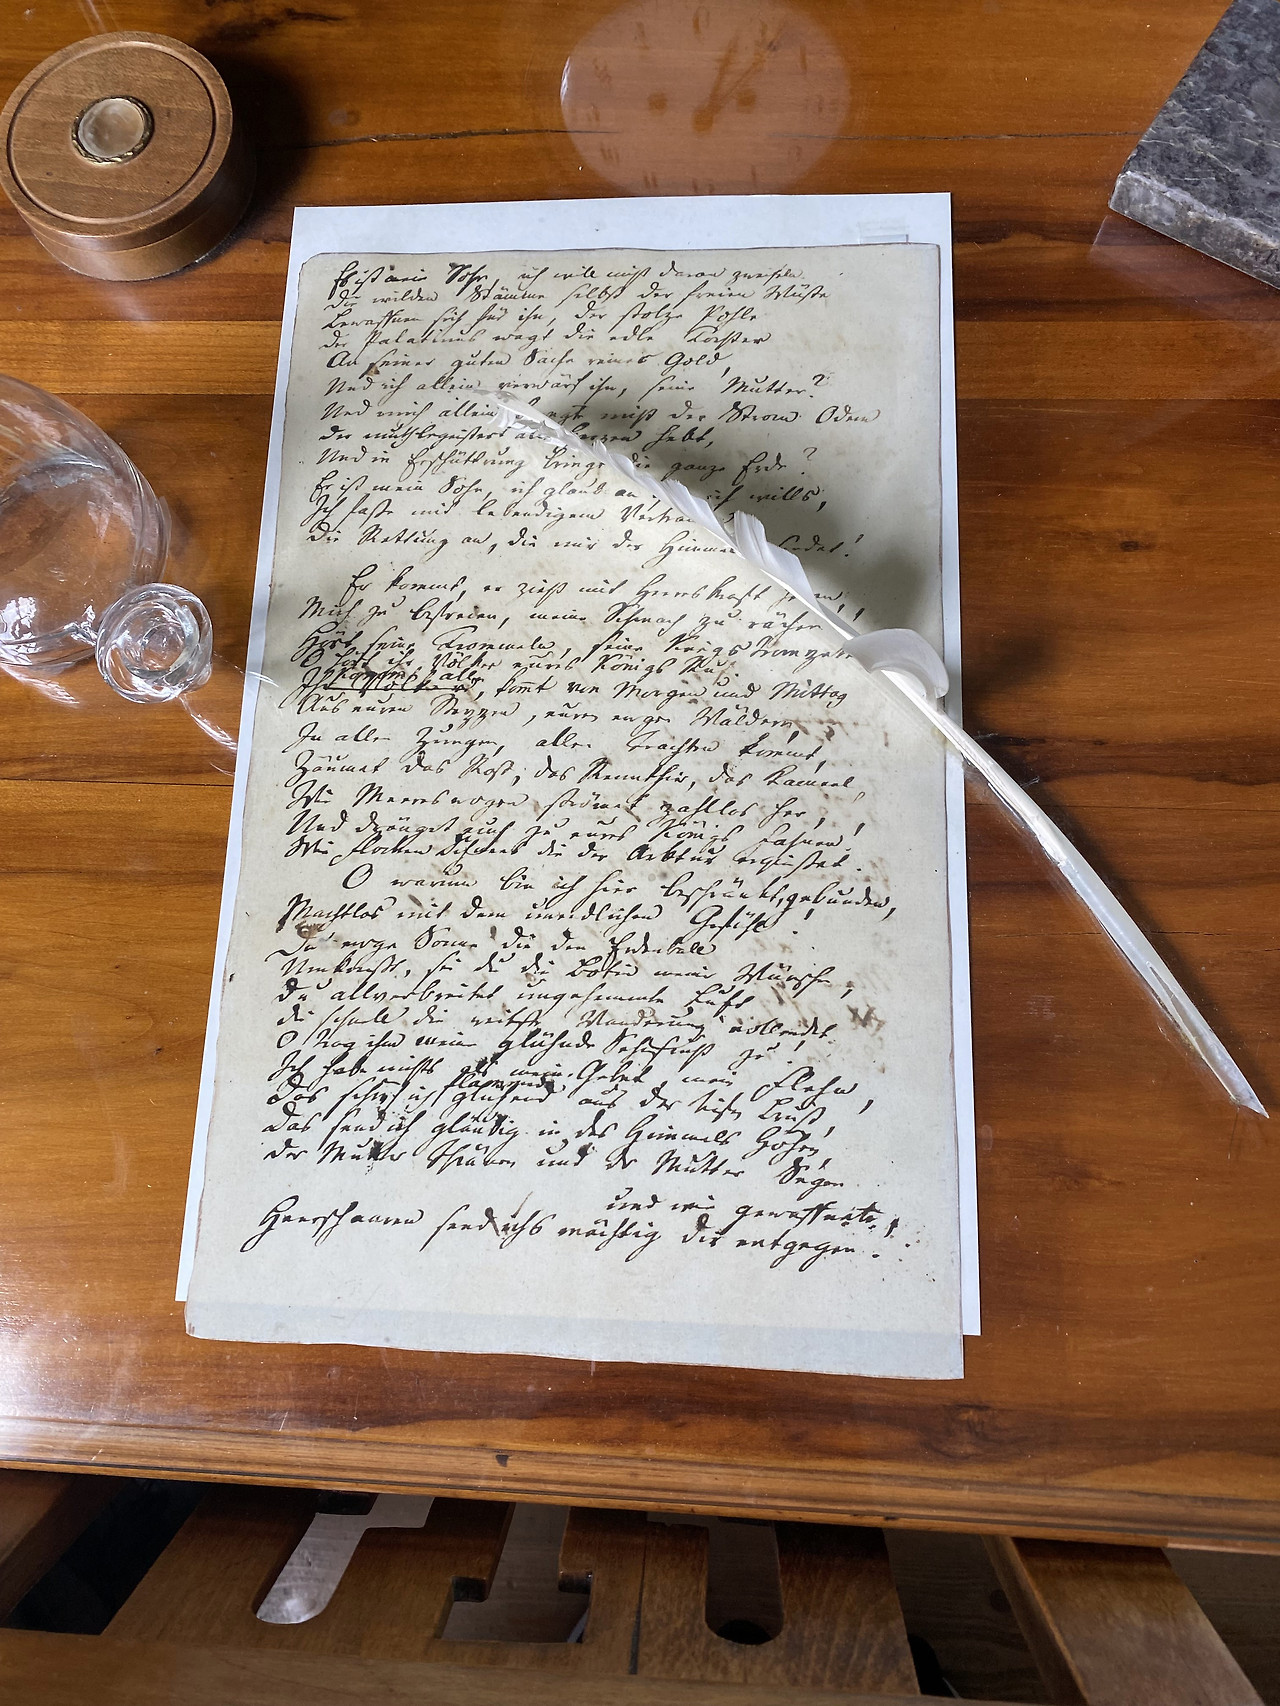 Es ist mein Sohn, ich will nicht daran zweifeln.
Die wilden Stämme selbst der freien Wüste
Bewaffnen sich für ihn, der stolze Pohle
der Palatinus wagt die edle Tochter
An seiner guten Sache reines Gold,
Und ich allein verwärf ihn, seine Mutter?
Und mich allein nicht der Strom Odem
der muthbegeistert alle Herzen hebt,
Und in Erschütterung bringt die ganze Erde?
Er ist mein Sohn, ich glaub an ich wills,
Ich fasse mit lebendigem
Die Rettung an, die mir der Himmel sendet!
Er kommt, er zieht mit Heereskraft heran,
Mich zu befreien, meine Schmach zu rächen!
Hört seine Trommeln, seine Kriegstrompeten
O hört ihr Völker eures Königs Ruf
Ihr Völker, kommt von Morgen und Mittag
Aus euren Steppen, euren ewgen Wäldern,
In allen Zungen, allen Trachten kommt,
Zäumet das Roß, das Rennthier, das Kameel,
Wie Meereswogen strömet zahllos her,
Und dränget euch zu eures Königs Fahnen!
Wie Flocken Schnees die der Arktur ergießet.
O warum bin ich hier beschränkt, gebunden,
Machtlos mit dem unendlichen Gefühl!
Du ewge Sonne die den Erdenball
Umkreißt, sei du die Botin meiner Wünsche,
Du allverbreitet ungehemmte Luft
die schnell die weitste Wanderung vollendet
O trag ihm meine glühnde Sehnsucht zu!
Ich habe nichts als mein Gebet, mein Flehn,
flammend
Das schöpf ich glühend aus der tiefsten Brust,
Das send ich gläubig in des Himmels Höhen,
der Mutter Thränen und der Mutter Segen
und wie gewaffnete
Heerschaaren send ichs mächtig dir entgegen!